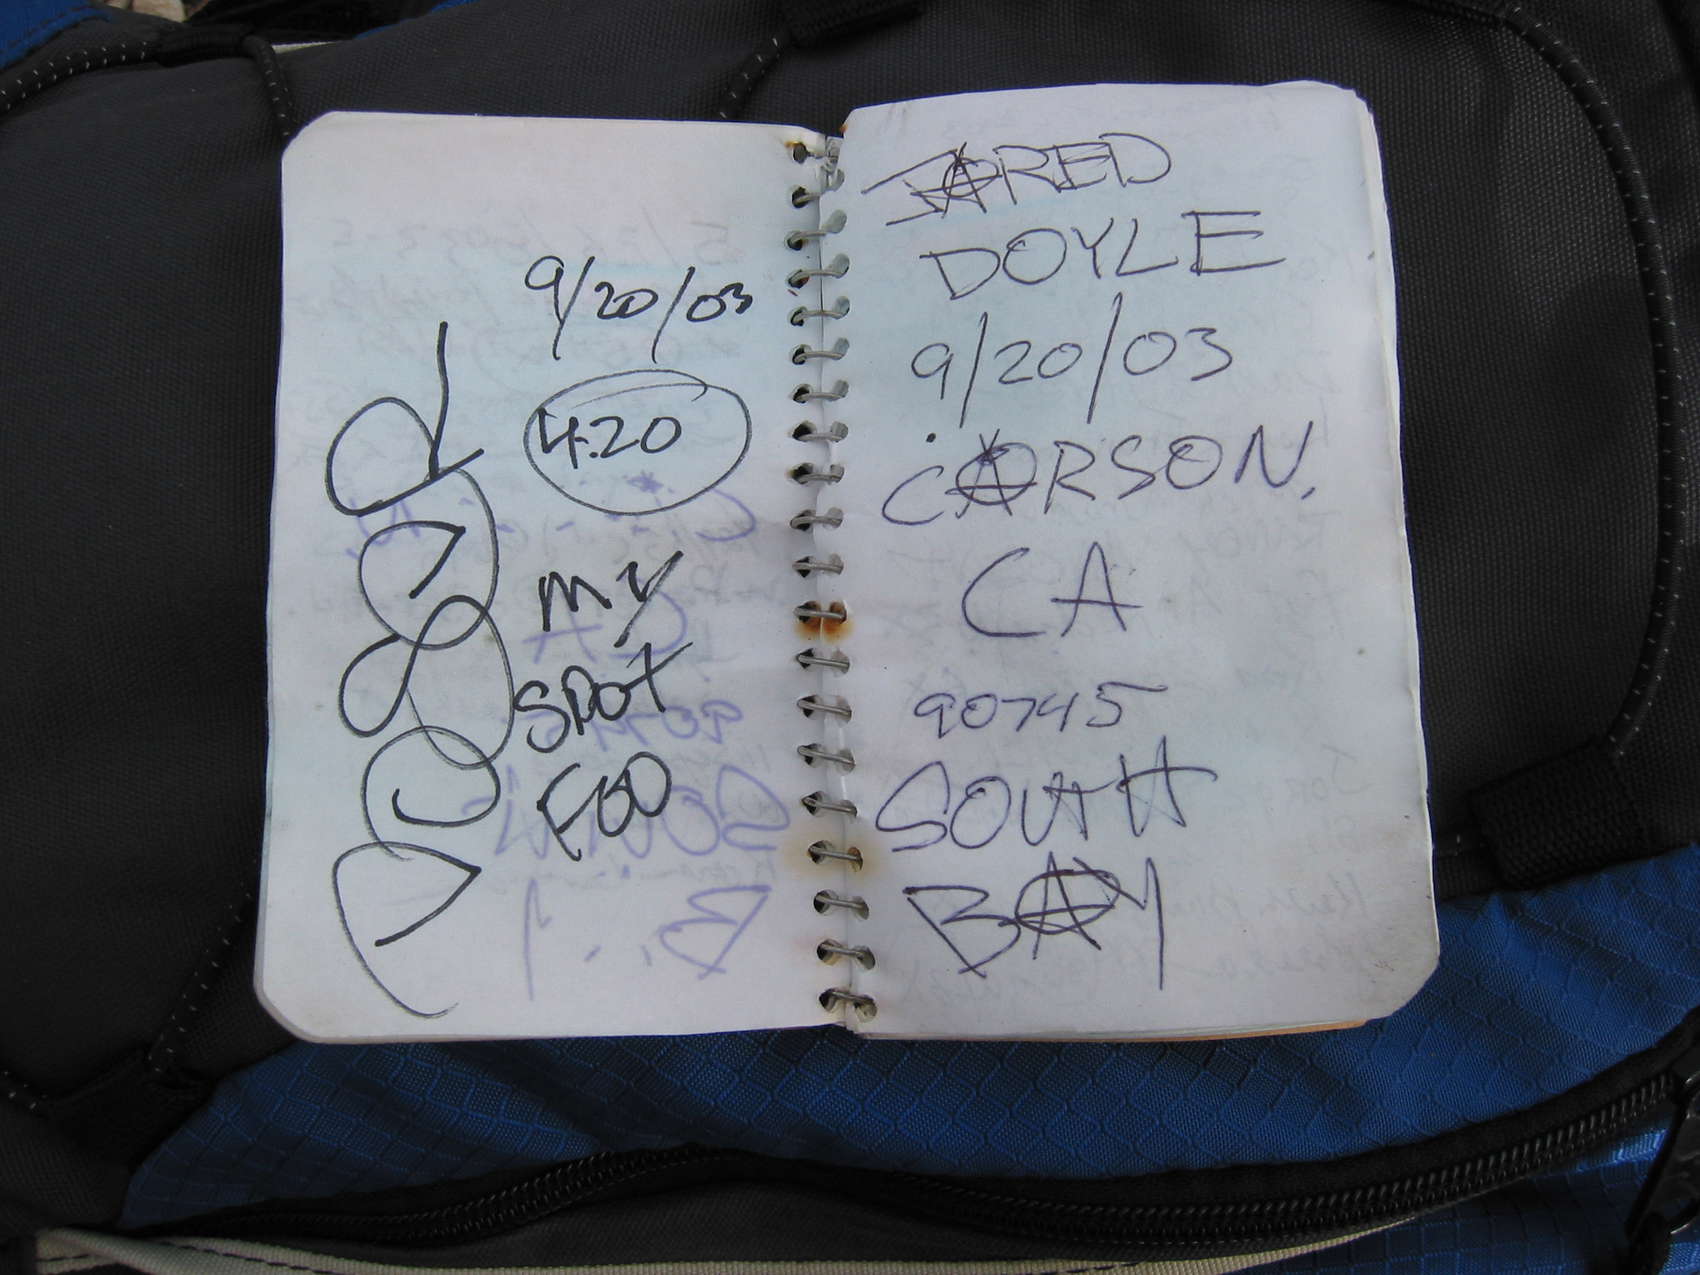 9/20/03
4:20
MY
SPOT
FOO
JARED
DOYLE
9/20/03
CARSON,
CA
90745
SOUTH
BAY